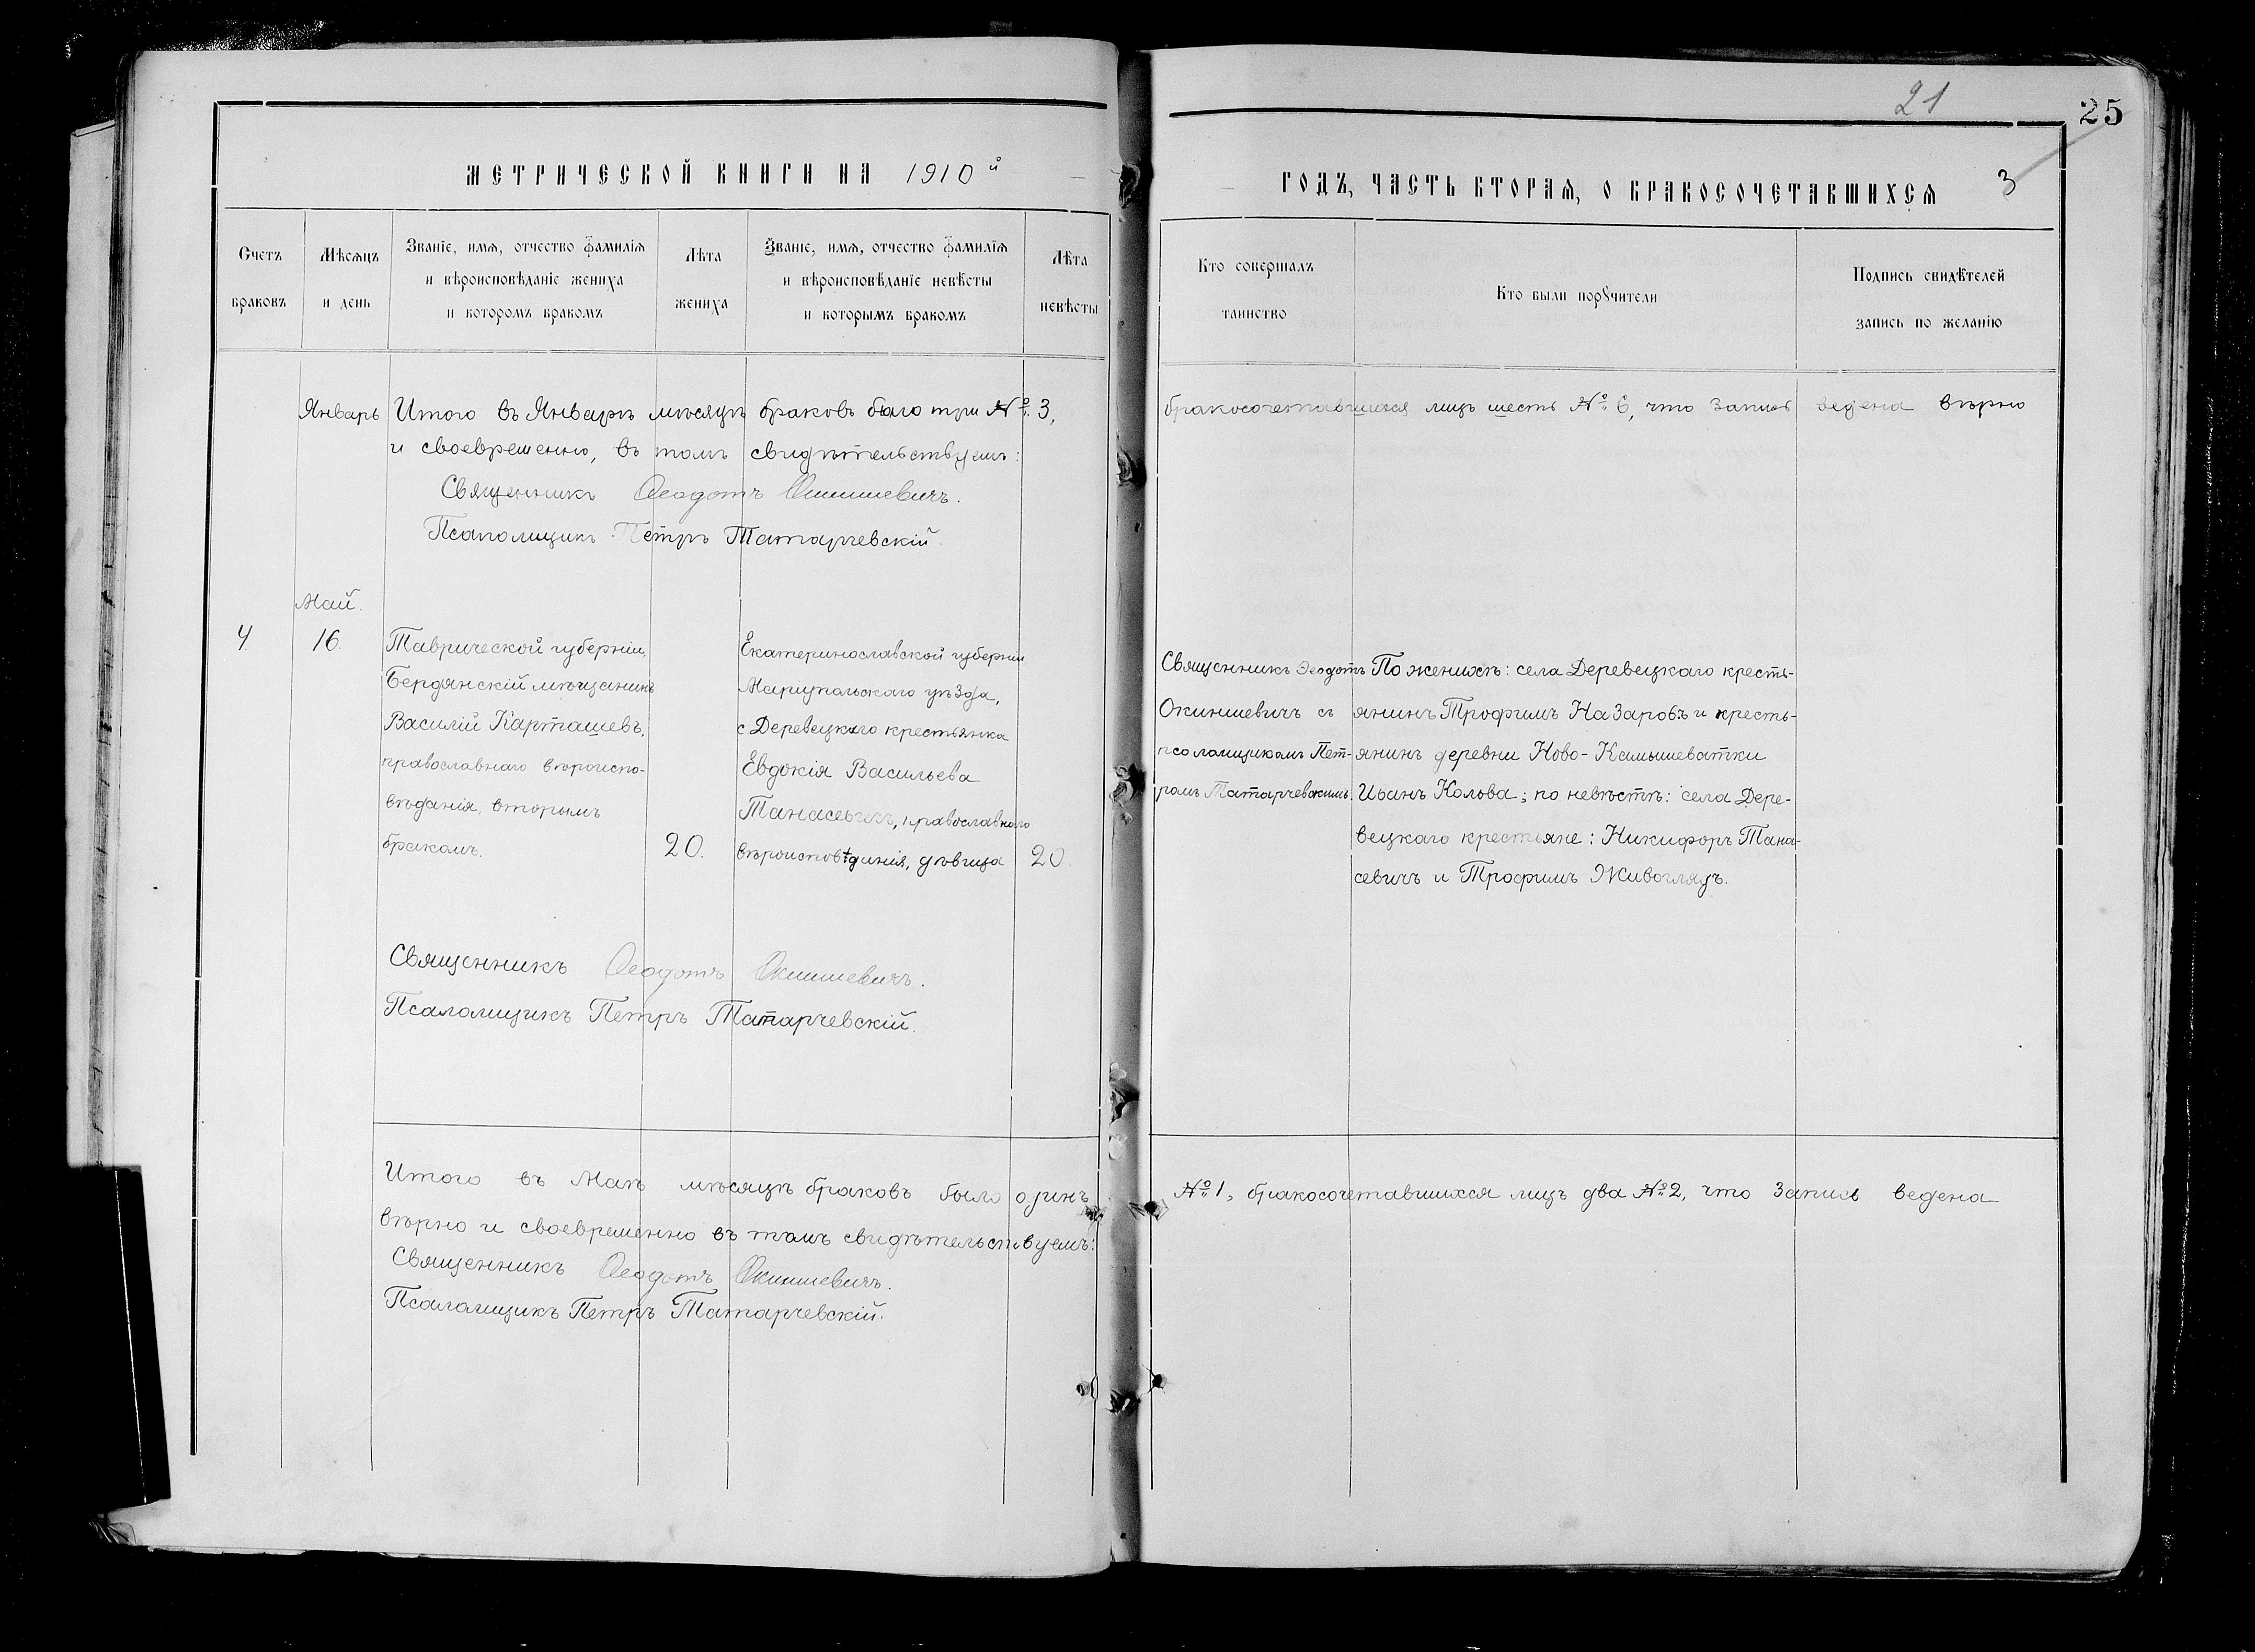 21
25
3
МЕТРИЧЕСКОЙ КНИГИ НА 1910й
ГОДЪ, ЧАСТЬ ВТОРАЯ, О БРАКОСОЧЕТАВШИХСЯ
Счетъ
браковъ
Мѣсяцъ
и день
Званіе, имя, отчество фамилія
и вѣроисповѣданіе жениха
и которомъ бракомъ
Лѣта
жениха
Званіе, имя, отчество фамилія
и вѣроисповѣданіе невѣсты
и которымъ бракомъ
Лѣта
невѣсты
Кто совершалъ
таинство
Кто были поручители
Подпись свидѣтелей
запись по желанію
Январь Итого въ Январѣ мѣсяцѣ браковъ было три №. 3, бракосочетавшихся лицъ шесть №. 6, что запись ведена вѣрно
и своевременно, въ томъ свидѣтельствуемъ:
Священникъ Ѳеодотъ Окиншевичъ.
Псаломщикъ Петръ Татарчевскій
Май.
4.
16.
Таврической губерніи,
Бердянскій мѣщанинъ
Василій Карташевъ,
православнаго вѣроиспо-
вѣданія, вторымъ
бракомъ.
20.
Екатеринославской губерніи
Маріупольскаго уѣзда,
с Деревецкаго крестьянка
Евдокія Васильева
Танасевичъ, православнаго
вѣроисповѣдинія, дѣвица
20
Священникъ Ѳеодотъ
Окиншевичъ съ
псаломщикомъ Пет-
ромъ Татарчевскимъ.
По женихѣ: села Деревецкаго кресть-
янинъ Трофимъ Назаровъ и кресть-
янинъ деревни Ново-Камышеватки
Иванъ Колова; по невѣстѣ: села Дере-
вецкаго крестьяне: Никифоръ Тана-
севичъ и Трофимъ Живогляд.
Священникъ Ѳеодотъ Окиншевичъ.
Псаломщикъ Петръ Татарчевскій.
Итого въ Маѣ мѣсяцѣ браковъ было одинъ №. 1, бракосочетавшихся лицъ два №. 2, что запись ведена
вѣрно и своевременно въ томъ свидѣтельствуемъ:
Священникъ Ѳеодотъ Окиншевичъ.
Псаломщикъ Петръ Татарчевскій.